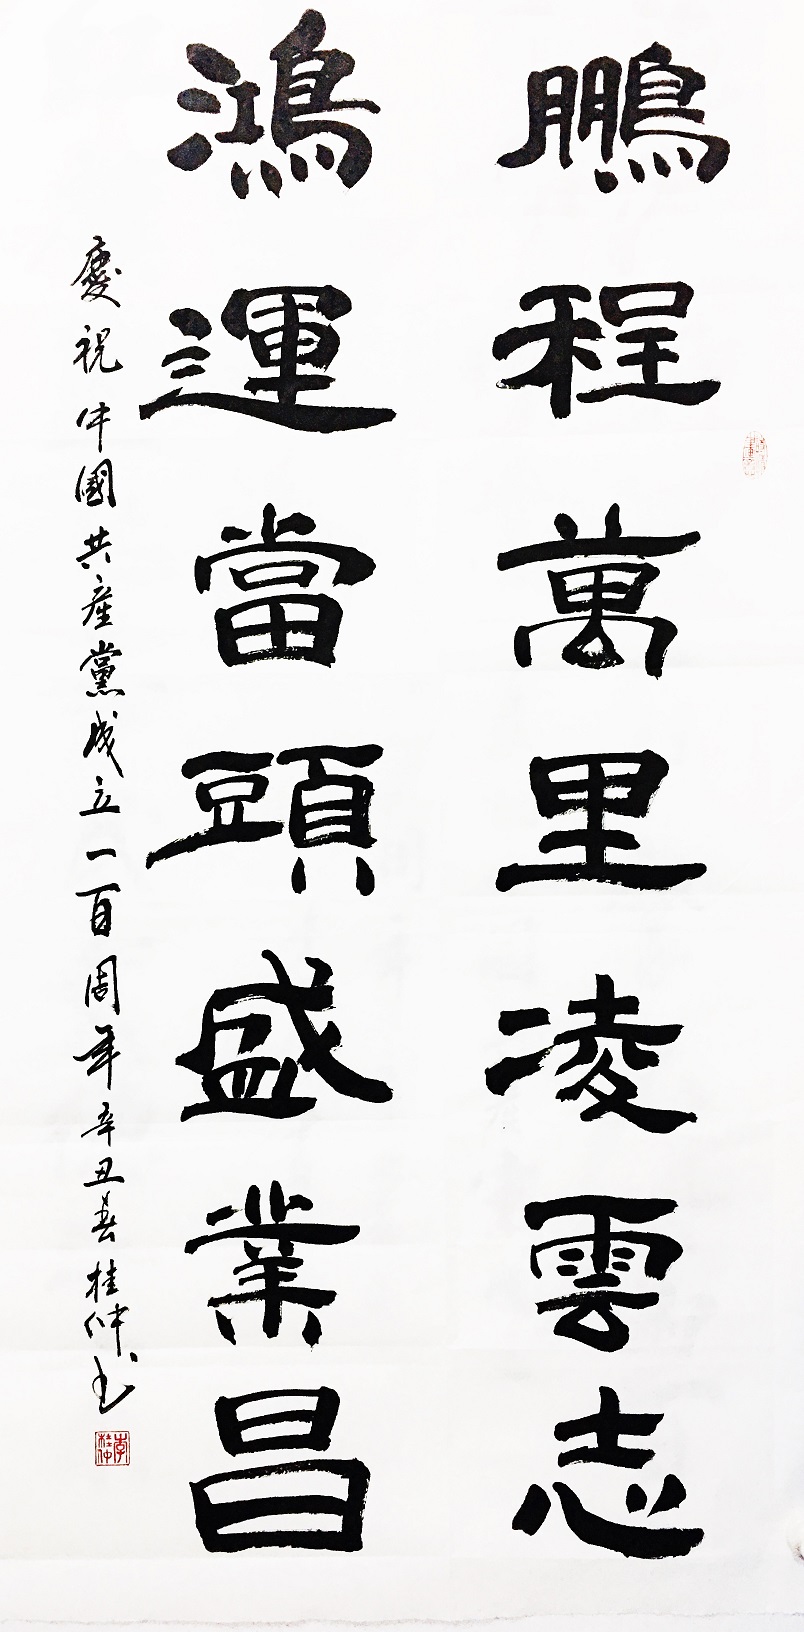 鵬程萬里凌雲志
鴻運當頭盛業昌
慶祝中國共產黨成立一百周年辛丑春桂仲书
李桂仲